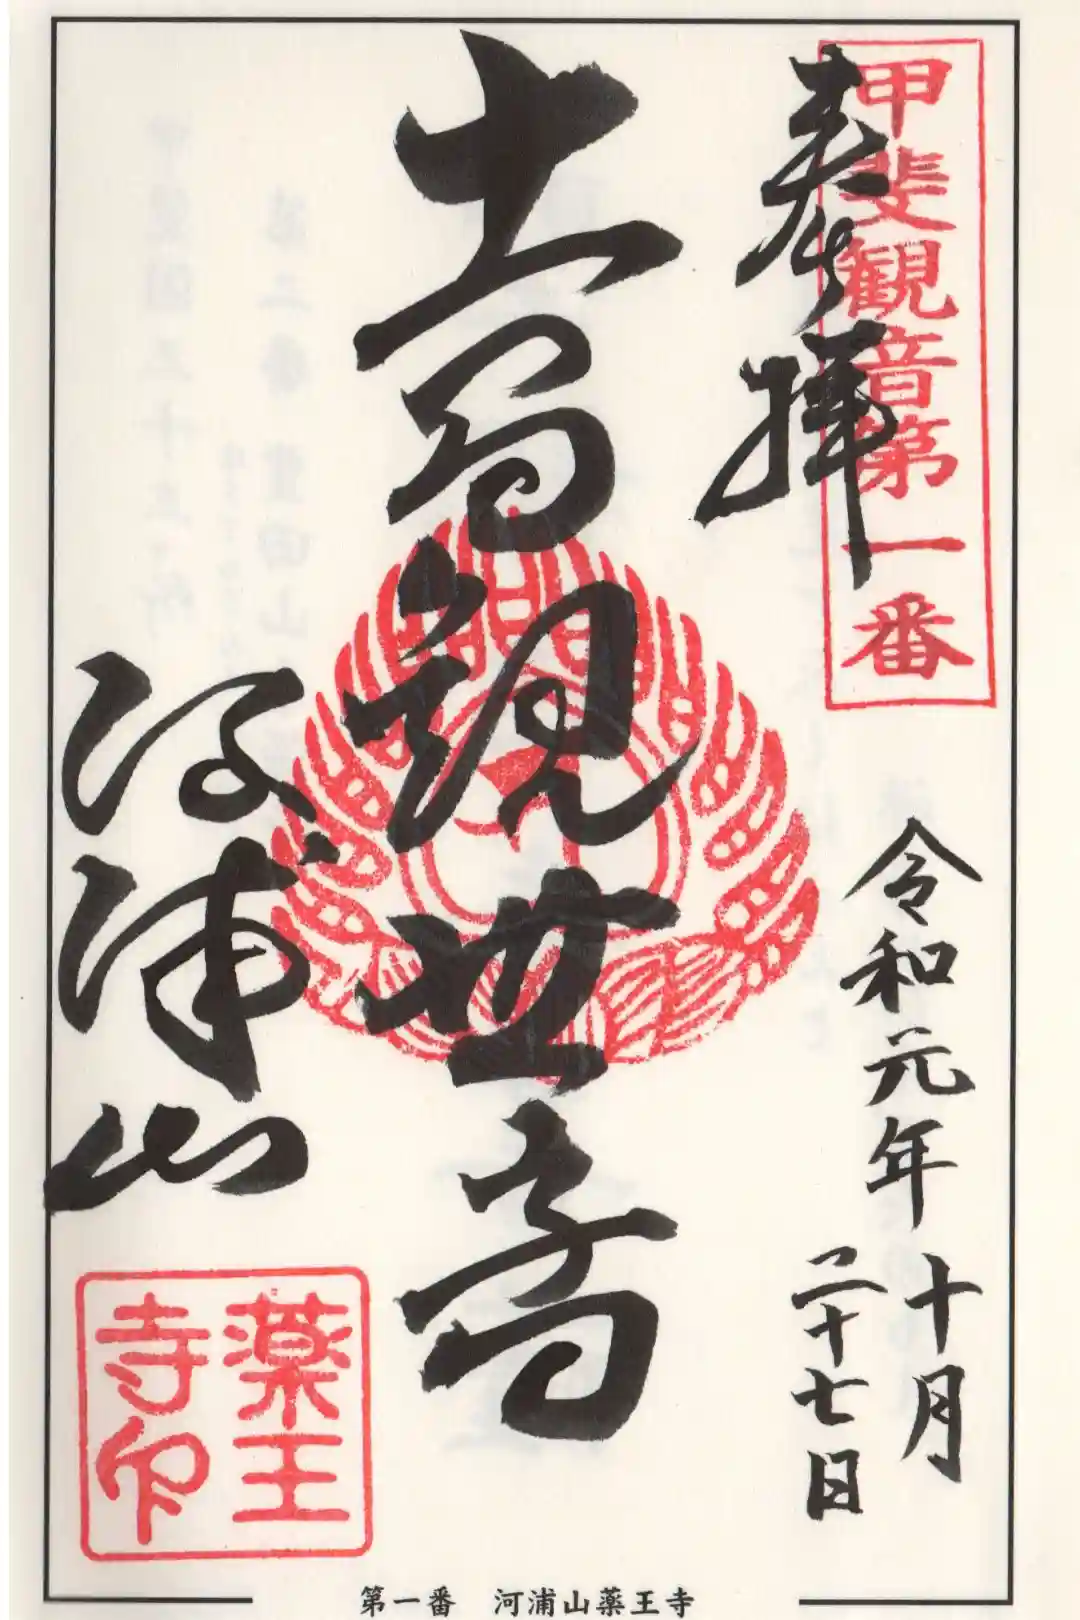 甲斐観音第一番
奉拝
令和元年十月
二十七日
十一面観世音
河浦山
薬王
寺印
第一番 河浦山薬王寺